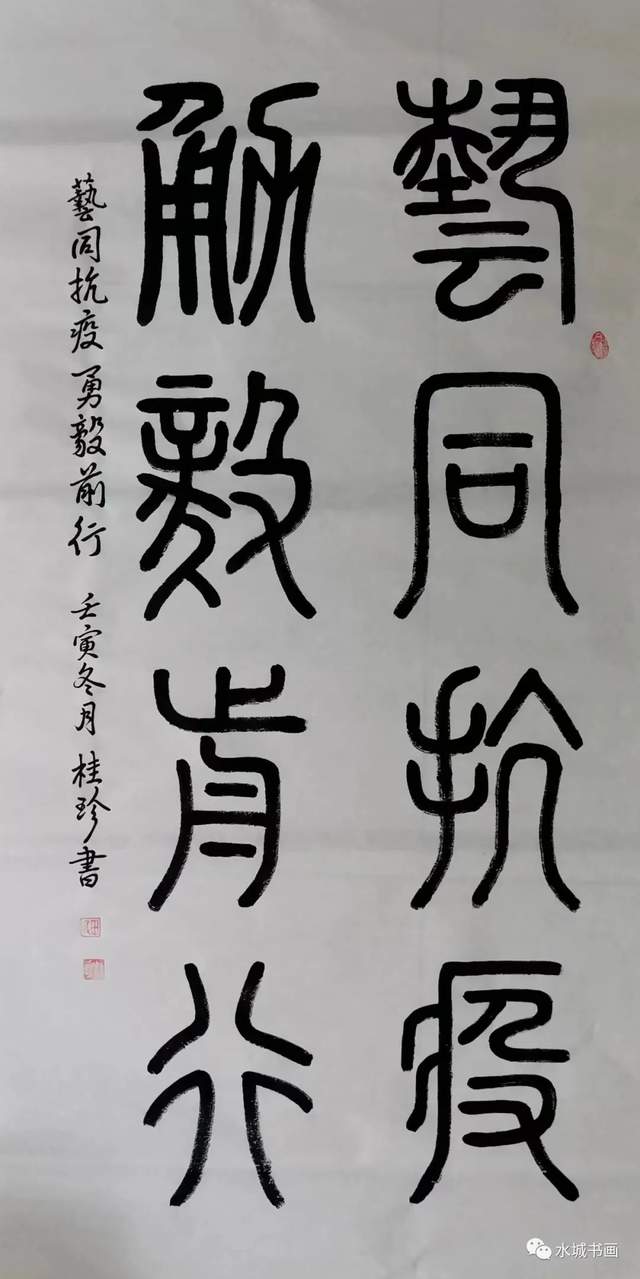 藝同抗疫
勇毅前行
藝同抗疫勇毅前行 壬寅冬月 桂珍書
水城书画